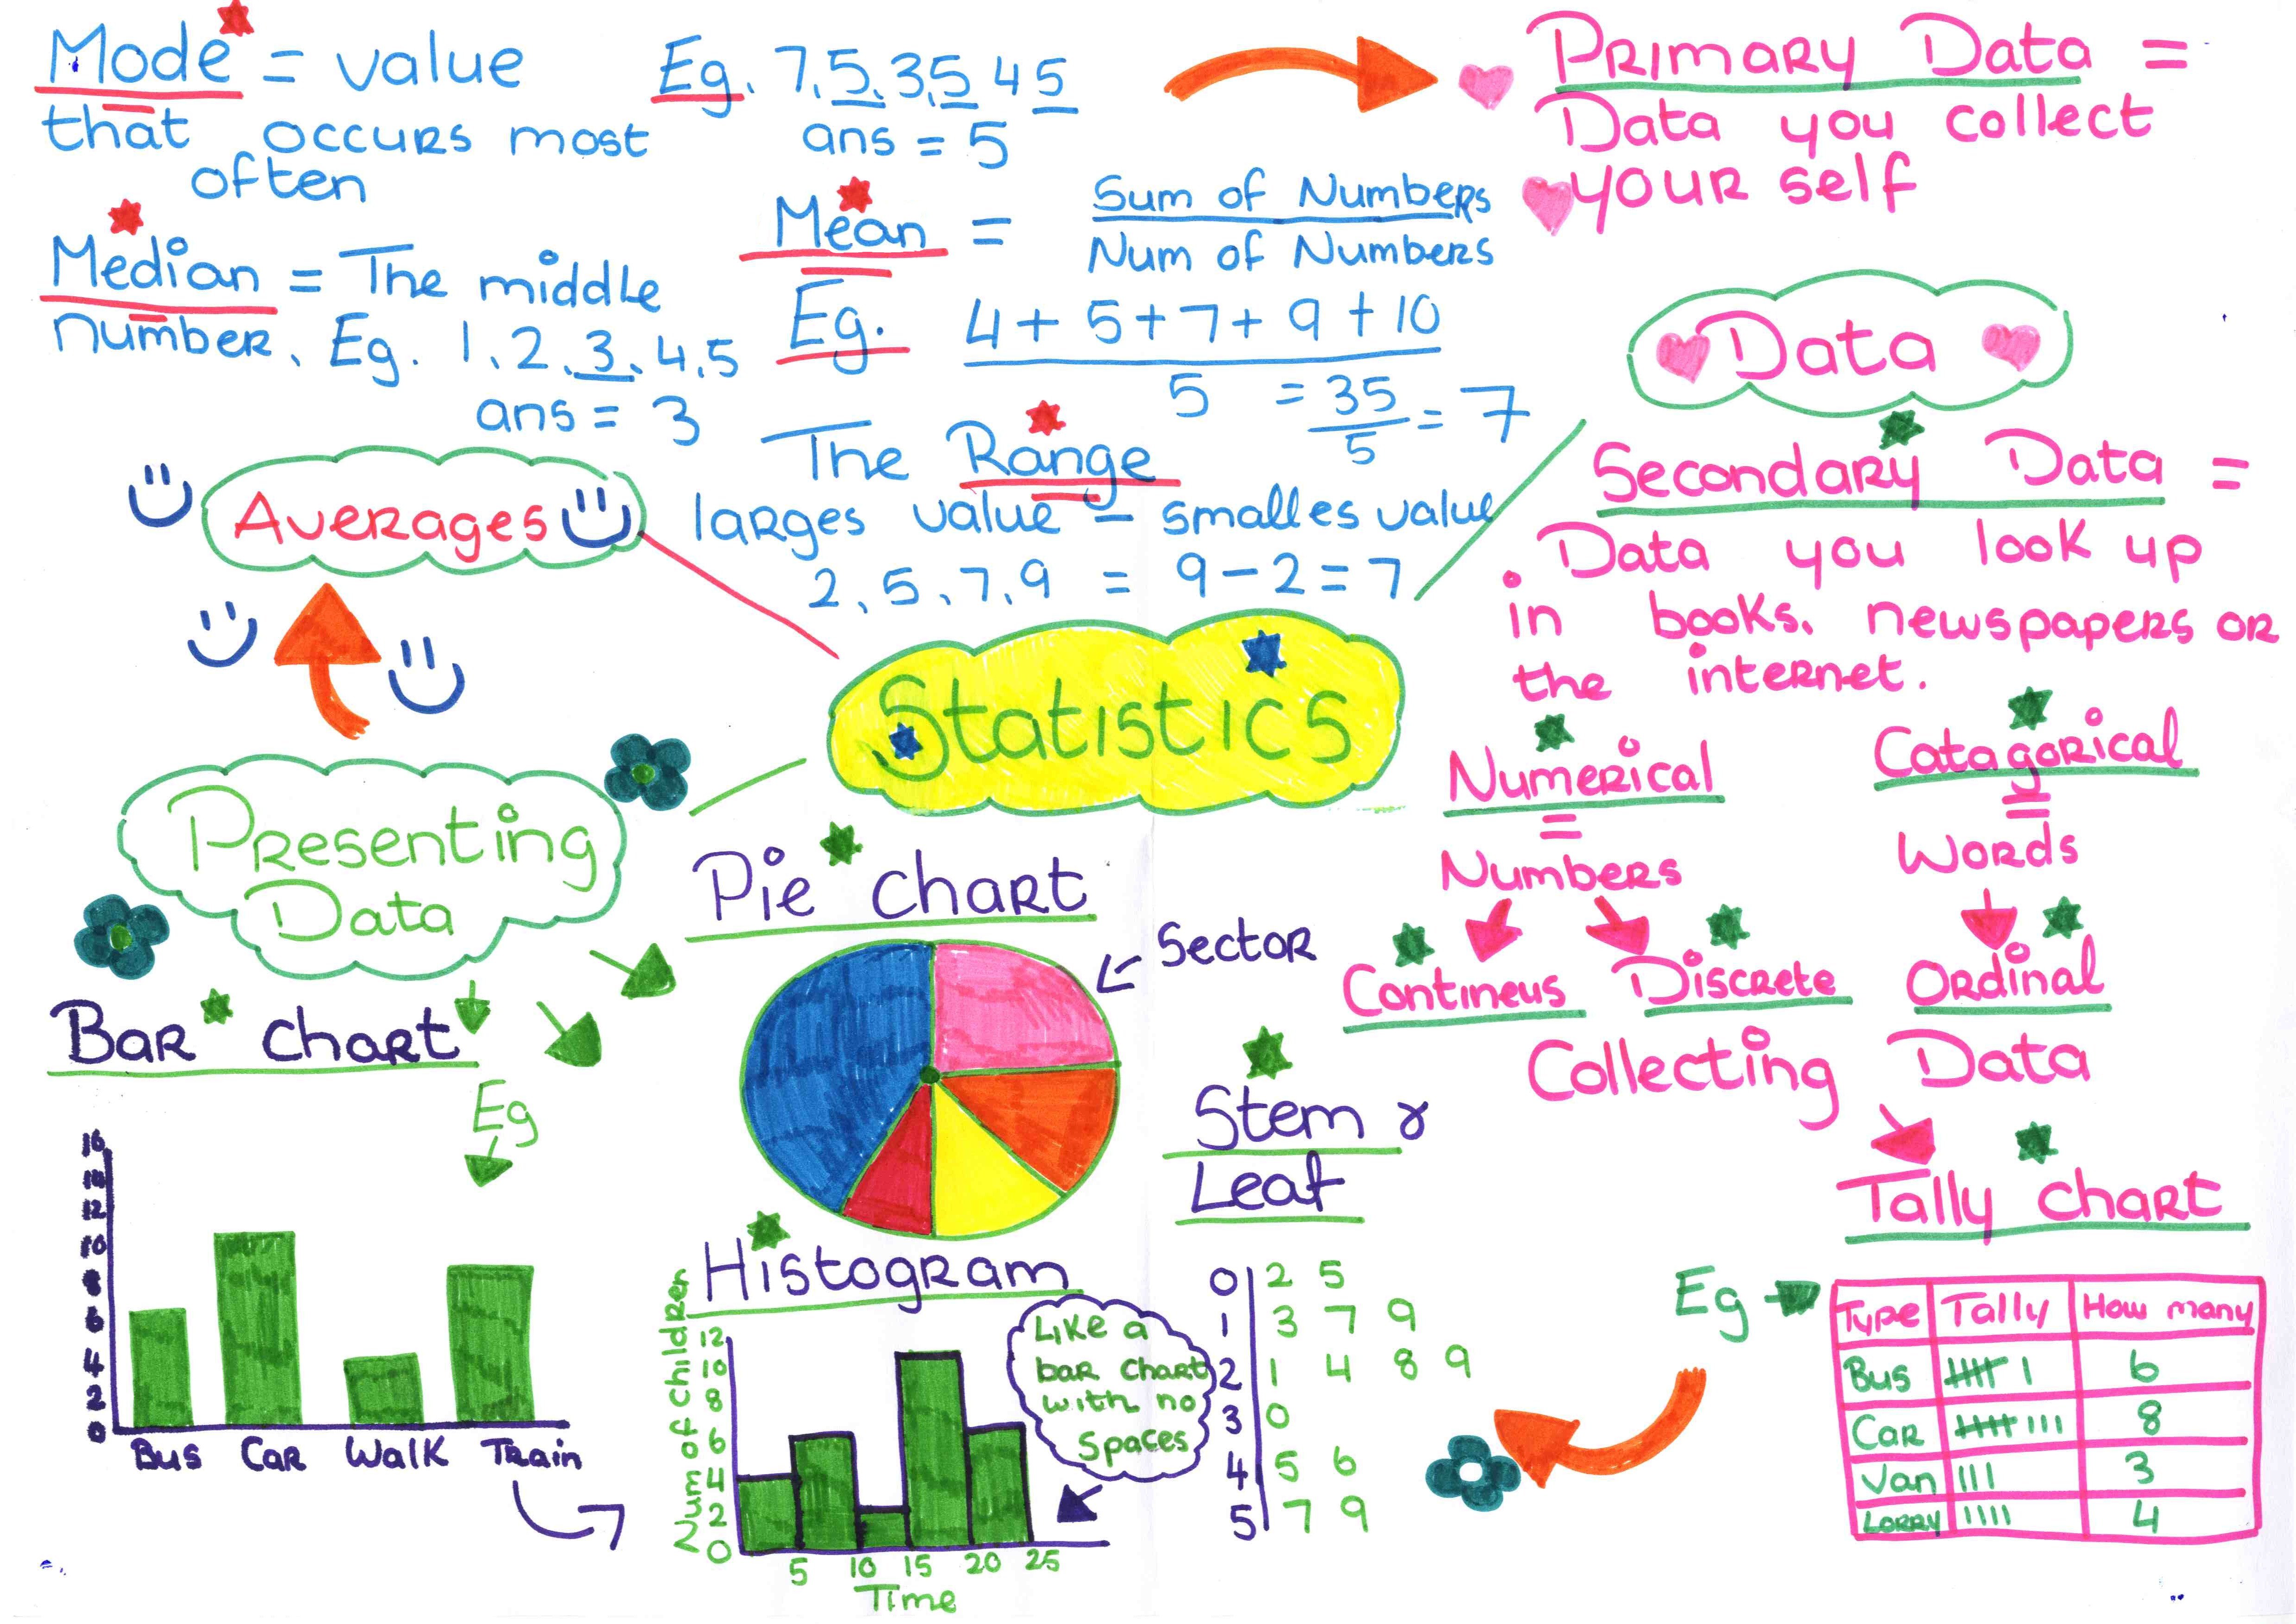 Mode = value
that occurs most
often
Eg. 7, 5, 3, 5 4 5
ans = 5
Median = The middle
number. Eg. 1, 2, 3, 4, 5
ans = 3
Mean = Sum of Numbers
Num of Numbers
Eg. 4 + 5 + 7 + 9 + 10
5 = 35
5 = 7
The Range
larges value - smalles value
2, 5, 7, 9 = 9 - 2 = 7
Averages
Primary Data =
Data you collect
your self
Data
Secondary Data =
Data you look up
in books, newspapers or
the internet.
Numerical
=
Numbers
Contineus Discrete
Catagorical
=
Words
Ordinal
Statistics
Presenting
Data
Bar chart
Eg
16
14
12
10
8
6
4
2
0
Bus Car Walk Train
Pie chart
Sector
Histogram
Num of Children
12
10
8
6
4
2
0
5 10 15 20 25
Time
Like a
bar chart
with no
spaces
Stem &
Leaf
0 2 5
1 3 7 9
2 1 4 8 9
3 0
4 5 6
5 7 9
Collecting Data
Tally chart
Eg
Type Tally How many
Bus 6
Car 8
Van 3
Lorry 4